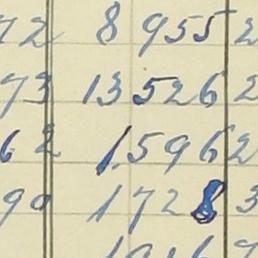 72 8 955 2
73 13 526 2
62 1 596 2
90 1 728 3